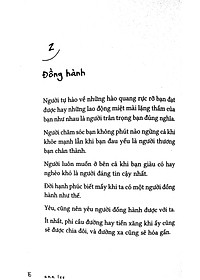 2
Đồng hành
Người tự hào về những hào quang rực rỡ bạn đạt
được hay những lao động miệt mài lặng thầm của
bạn như nhau là người trân trọng bạn đúng nghĩa.
Người chăm sóc bạn không phút nào ngừng cả khi
khỏe mạnh lẫn khi bạn đau yếu là người thương
bạn chân thành.
Người luôn muốn ở bên cả khi bạn giàu có hay
nghèo khó là người đáng tin cậy nhất.
Đời hạnh phúc biết mấy khi ta có một người đồng
hành như thế.
Yêu, cũng nên yêu người đồng hành được với ta.
Ít nhất, phi cầu đường hay tiến xăng khi ấy cũng
sẽ được chia đôi, và đường xa cũng sẽ hóa gần.